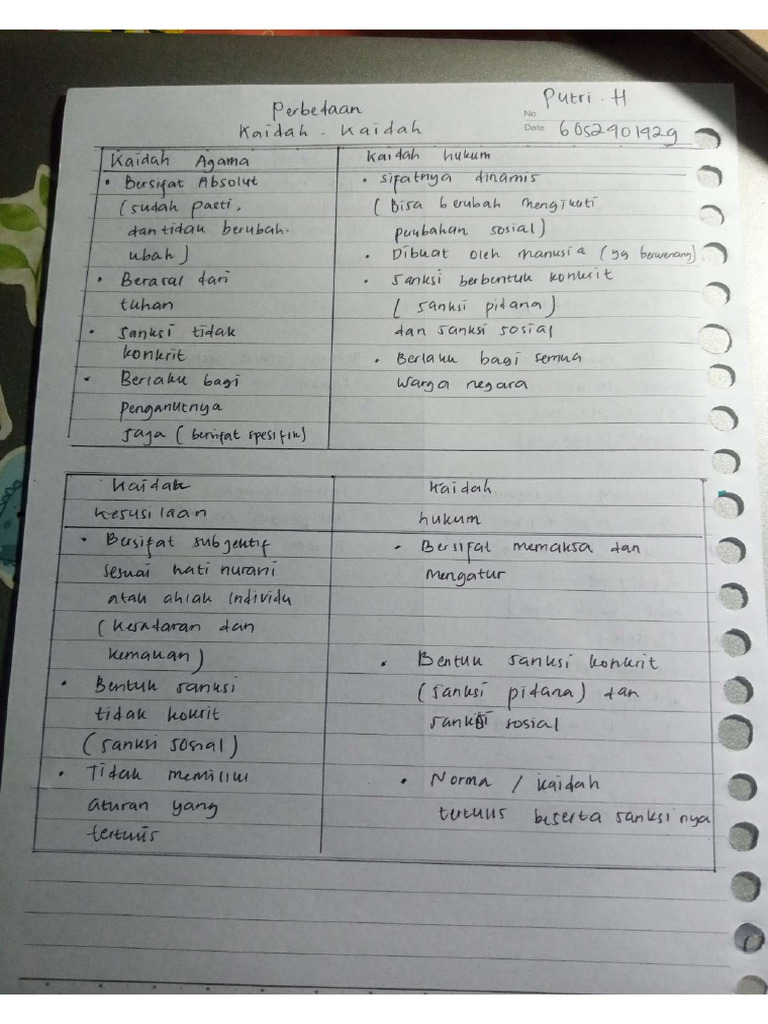 Putri . H
Perbedaan
No
Kaidah - Kaidah
Date 6052901929
Kaidah Agama
• Bersifat Absolut
(sudah pasti,
dan tidak berubah.
ubah)
• Berasal dari
tuhan
• Sanksi tidak
konkrit
• Berlaku bagi
penganutnya
saja (bersifat spesifik)
Kaidah hukum
• sifatnya dinamis
(Bisa berubah mengikuti
perubahan sosial)
• Dibuat oleh manusia (yg berwenang)
• Sanksi berbentuk konkrit
(sanksi pidana)
dan sanksi sosial
• Berlaku bagi semua
warga negara
Kaidah
kesusilaan
• Bersifat subjektif
sesuai hati nurani
atau ahlak individu
(kesadaran dan
kemauan)
• Bentuk sanksi
tidak kokrit
(sanksi sosial)
• Tidak memiliki
aturan yang
tertulis
Kaidah
hukum
• Bersifat memaksa dan
mengatur
• Bentuk sanksi konkrit
(sanksi pidana) dan
sanksi sosial
• Norma / kaidah
tertulis beserta sanksi nya